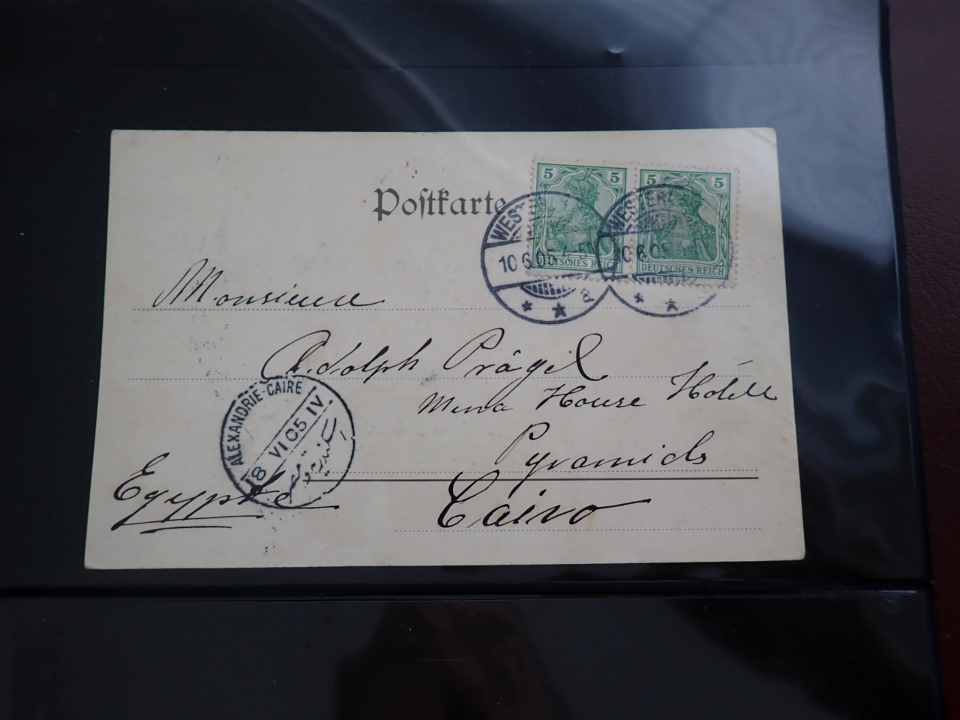 Postkarte
5 5 5 5
DEUTSCHES REICH DEUTSCHES REICH
10 6 05
a
Monsieur
Adolph Prägel
Mena House Hôtel
Pyramids
Cairo
Egypte
ALEXANDRIE-CAIRE
18 VI 05 IV